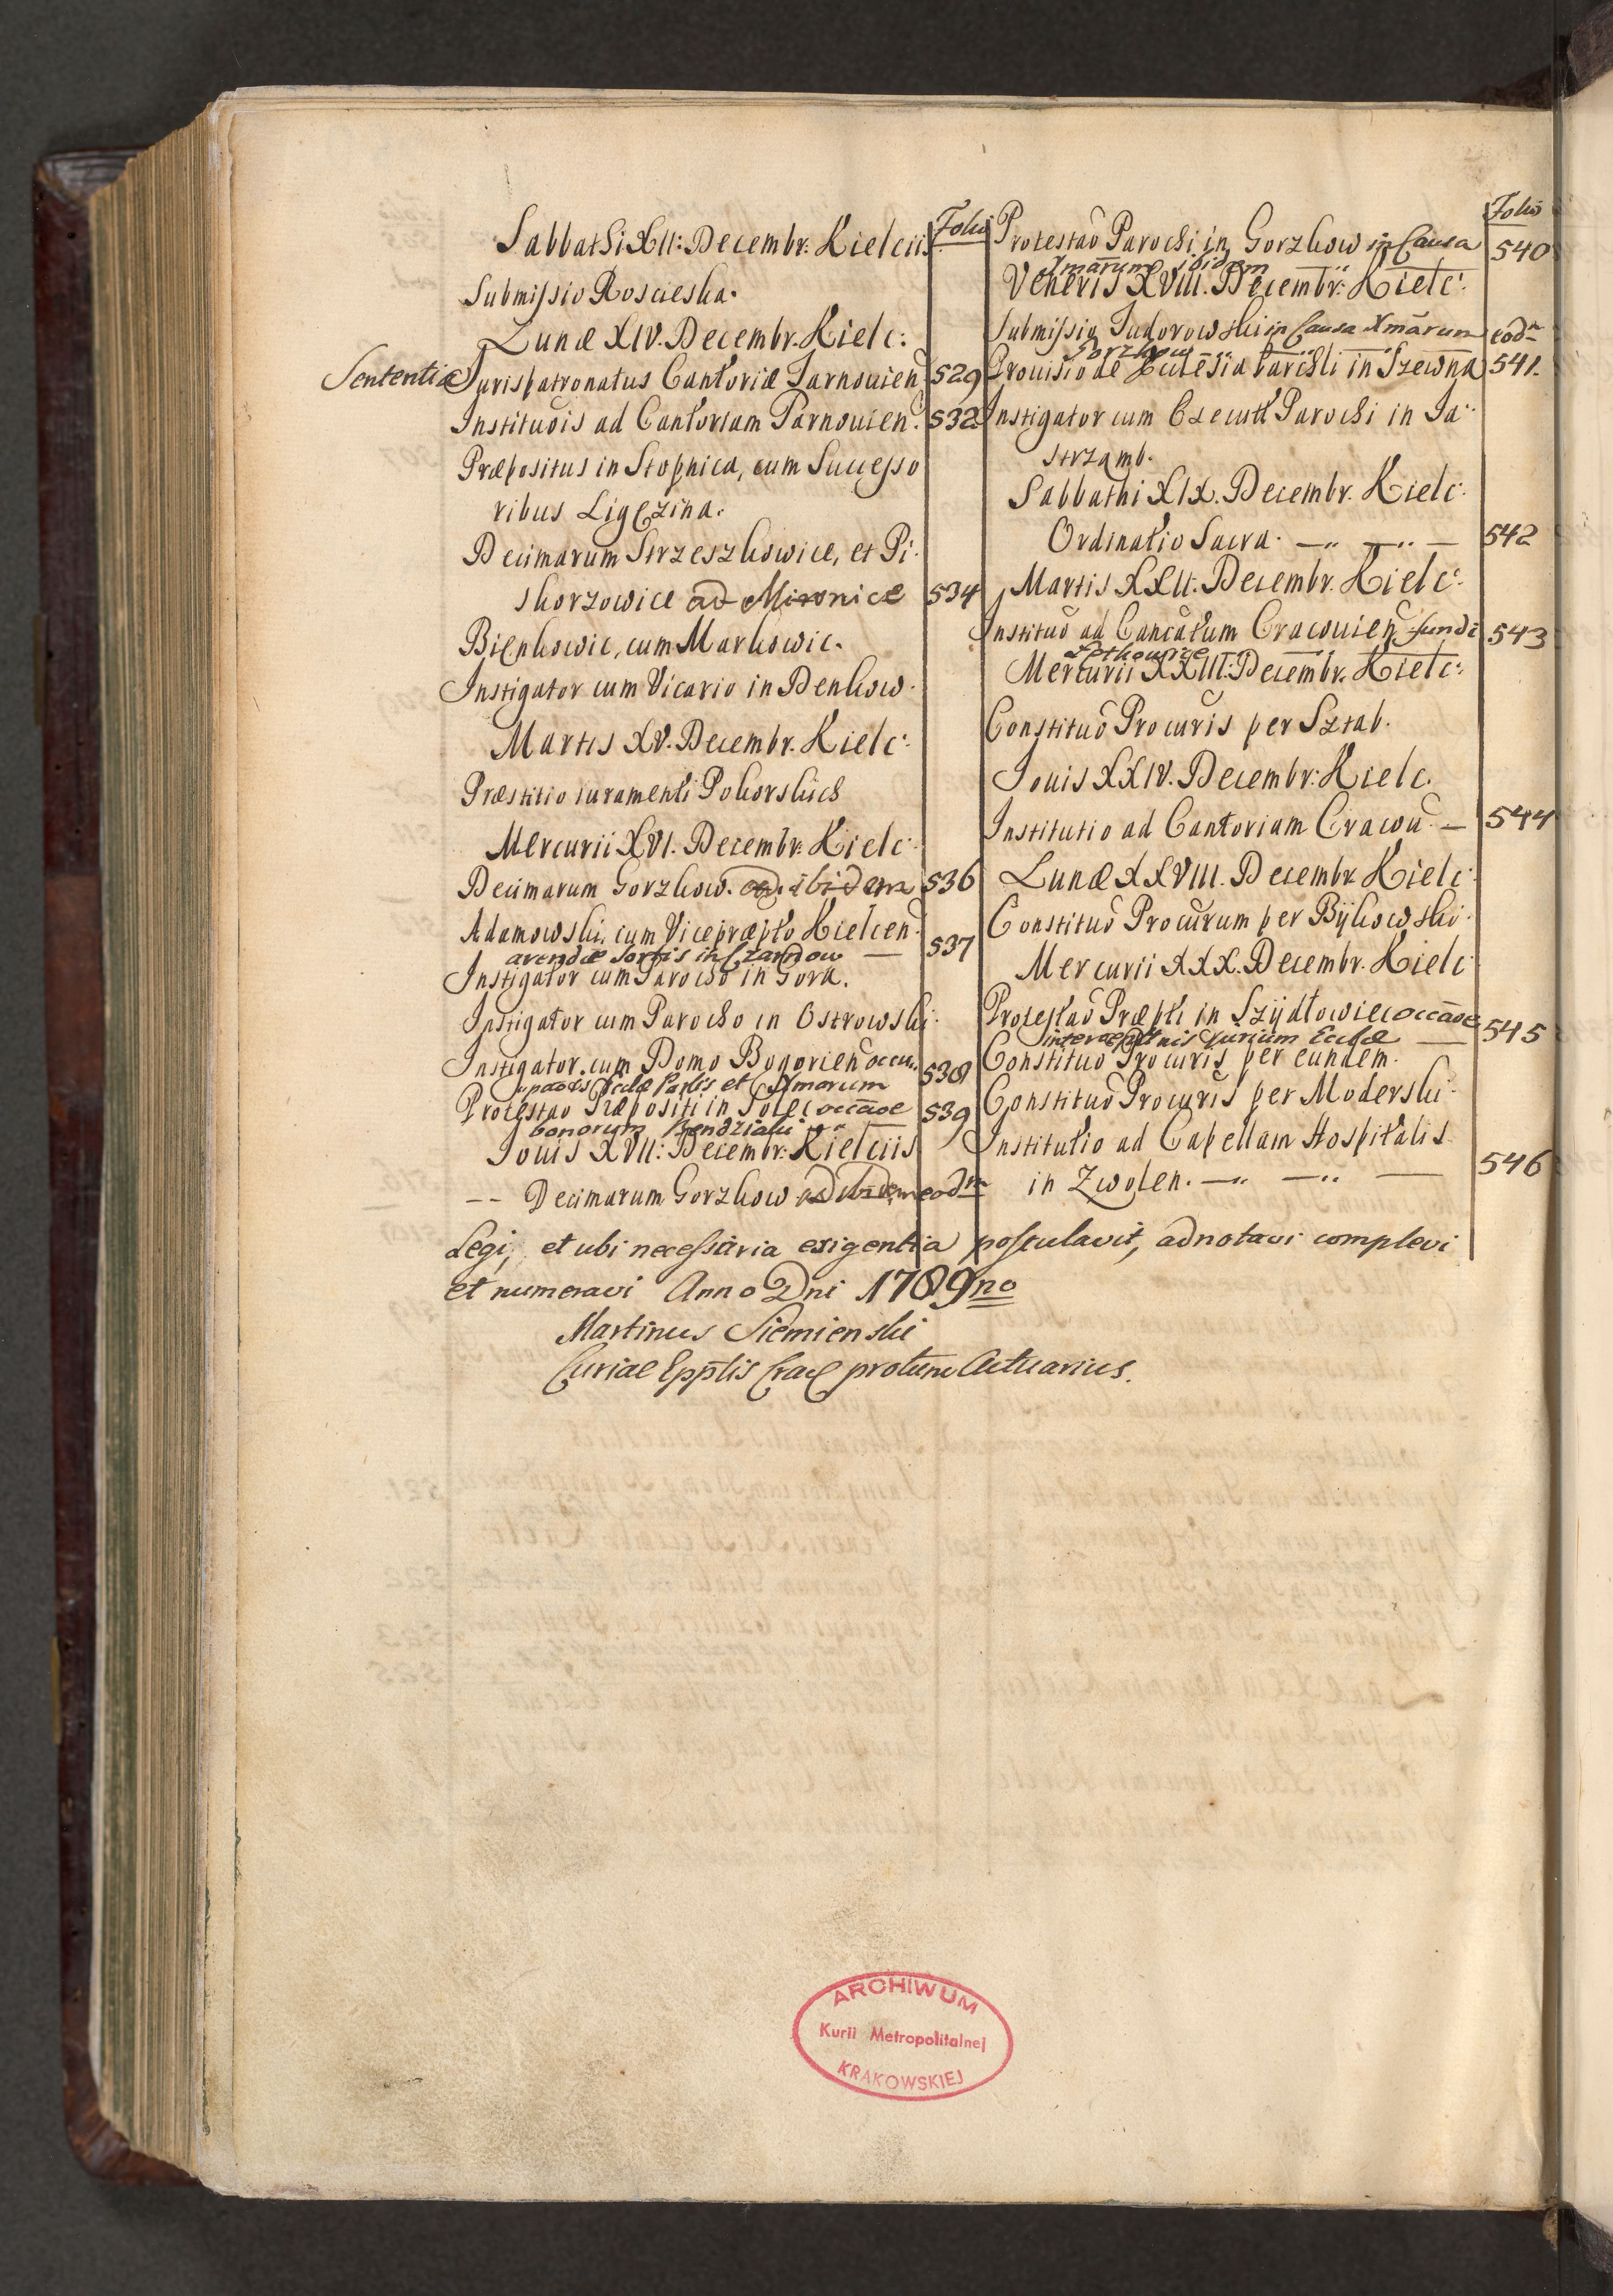 Folio
Sabbathi XII: Decembr: Kielciis
Submissio Roscieska.
Lunæ XIV. Decembr. Kielc:
Sententia Jurispatronatus Cantoriæ Tarnovien 529
Institutois ad Cantoriam Tarnovien. 532
Præpositus in Stopnica, cum Successo
ribus Ligęzina.
Decimarum Strzeszkowice, et Pi-
skorzowice ad Mironice 534
Bienkowic, cum Markowic.
Instigator cum Vicario in Denkow.
Martis XV. Decembr. Kielc:
Præstitio iuramenti Pokorskich
Mercurii XVI. Decembr: Kielc:
Decimarum Gorzkow. ad ibidem 536
Adamowski, cum Vicepræpto Kielcen
arendæ sortis in Czarnow — 537
Instigator cum Parocho in Gora.
Instigator cum Parocho in Ostrowski.
Instigator cum Domo Bogorien occu- 538
et Xmarum
Protestao Præpositi in Solec occãoe 539
bonorum
Jovis XVII: Decembr: Kielciis
-- Decimarum Gorzkow ad ibidem eodm
Folio
Protestao Parochi in Gorzkow in Causa 540
Xmarum ibidem
Veneris XVIII. Decembr: Kielc:
Submissio Tudorowski in Causa Xmãrum eodm
Gorzkow
Provisio de Ecclesia Parchli in Szewna 541.
Instigator cum Execut Parochi in Ja-
strzamb.
Sabbathi XIX. Decembr. Kielc:
Ordinatio Sacra. — — — 542
Martis XXII. Decembr. Kielc:
Instituo ad Cancatum Cracovien fundi 543
Mercurii XXIII: Decembr. Kielc:
Constituo Procuris per Sztab.
Jovis XXIV. Decembr: Kielc.
Institutio ad Cantoriam Cracov — 544
Lunæ XXVIII. Decembr Kielc:
Constituo Procurum per Bÿkowski.
Mercurii XXX. Decembr. Kielc
Protestao Præpti in Szÿdłowiec occãoe 545
jurium Eccliæ —
Constituo Procuris per eundem.
Constituo Procuris per Moderski.
Institutio ad Capellam Hospitalis
in Zwolen. — — — 546
Legi, et ubi necessaria exigentia postulavit, adnotavi complevi
et numeravi Anno Dni 1789no
Martinus Siemienski
Curiae Epptis Crac protunc Actuarius.
ARCHIWUM
Kurii Metropolitalnej
KRAKOWSKIEJ